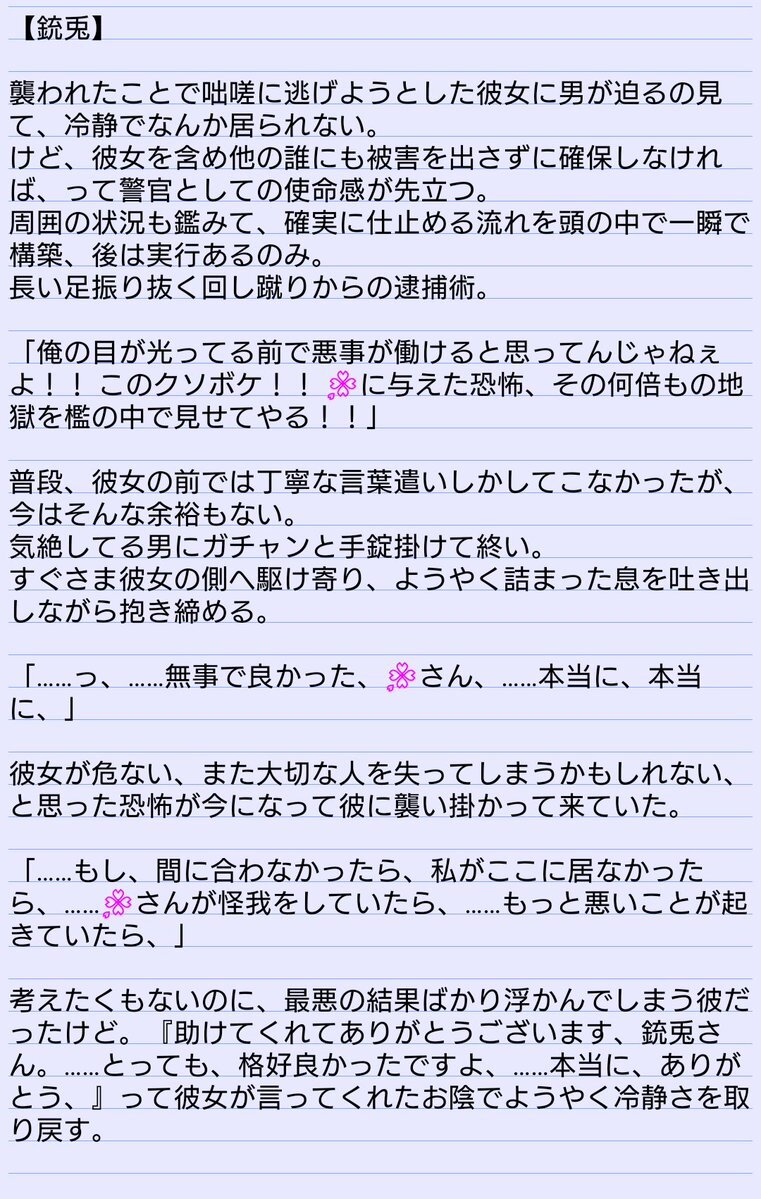 【銃兎】
襲われたことで咄嗟に逃げようとした彼女に男が迫るの見
て、冷静でなんか居られない。
けど、彼女を含め他の誰にも被害を出さずに確保しなけれ
ば、って警官としての使命感が先立つ。
周囲の状況も鑑みて、確実に仕止める流れを頭の中で一瞬で
構築、後は実行あるのみ。
長い足振り抜く回し蹴りからの逮捕術。
「俺の目が光ってる前で悪事が働けると思ってんじゃねぇ
よ！！このクソボケ！！🍀に与えた恐怖、その何倍もの地
獄を檻の中で見せてやる！！」
普段、彼女の前では丁寧な言葉遣いしかしてこなかったが、
今はそんな余裕もない。
気絶してる男にガチャンと手錠掛けて終い。
すぐさま彼女の側へ駆け寄り、ようやく詰まった息を吐き出
しながら抱き締める。
「……っ、……無事で良かった、🍀さん、……本当に、本当
に、」
彼女が危ない、また大切な人を失ってしまうかもしれない、
と思った恐怖が今になって彼に襲い掛かって来ていた。
「……もし、間に合わなかったら、私がここに居なかった
ら、……🍀さんが怪我をしていたら、……もっと悪いことが起
きていたら、」
考えたくもないのに、最悪の結果ばかり浮かんでしまう彼だ
ったけど。『助けてくれてありがとうございます、銃兎さ
ん。……とっても、格好良かったですよ、……本当に、ありが
とう、』って彼女が言ってくれたお陰でようやく冷静さを取
り戻す。